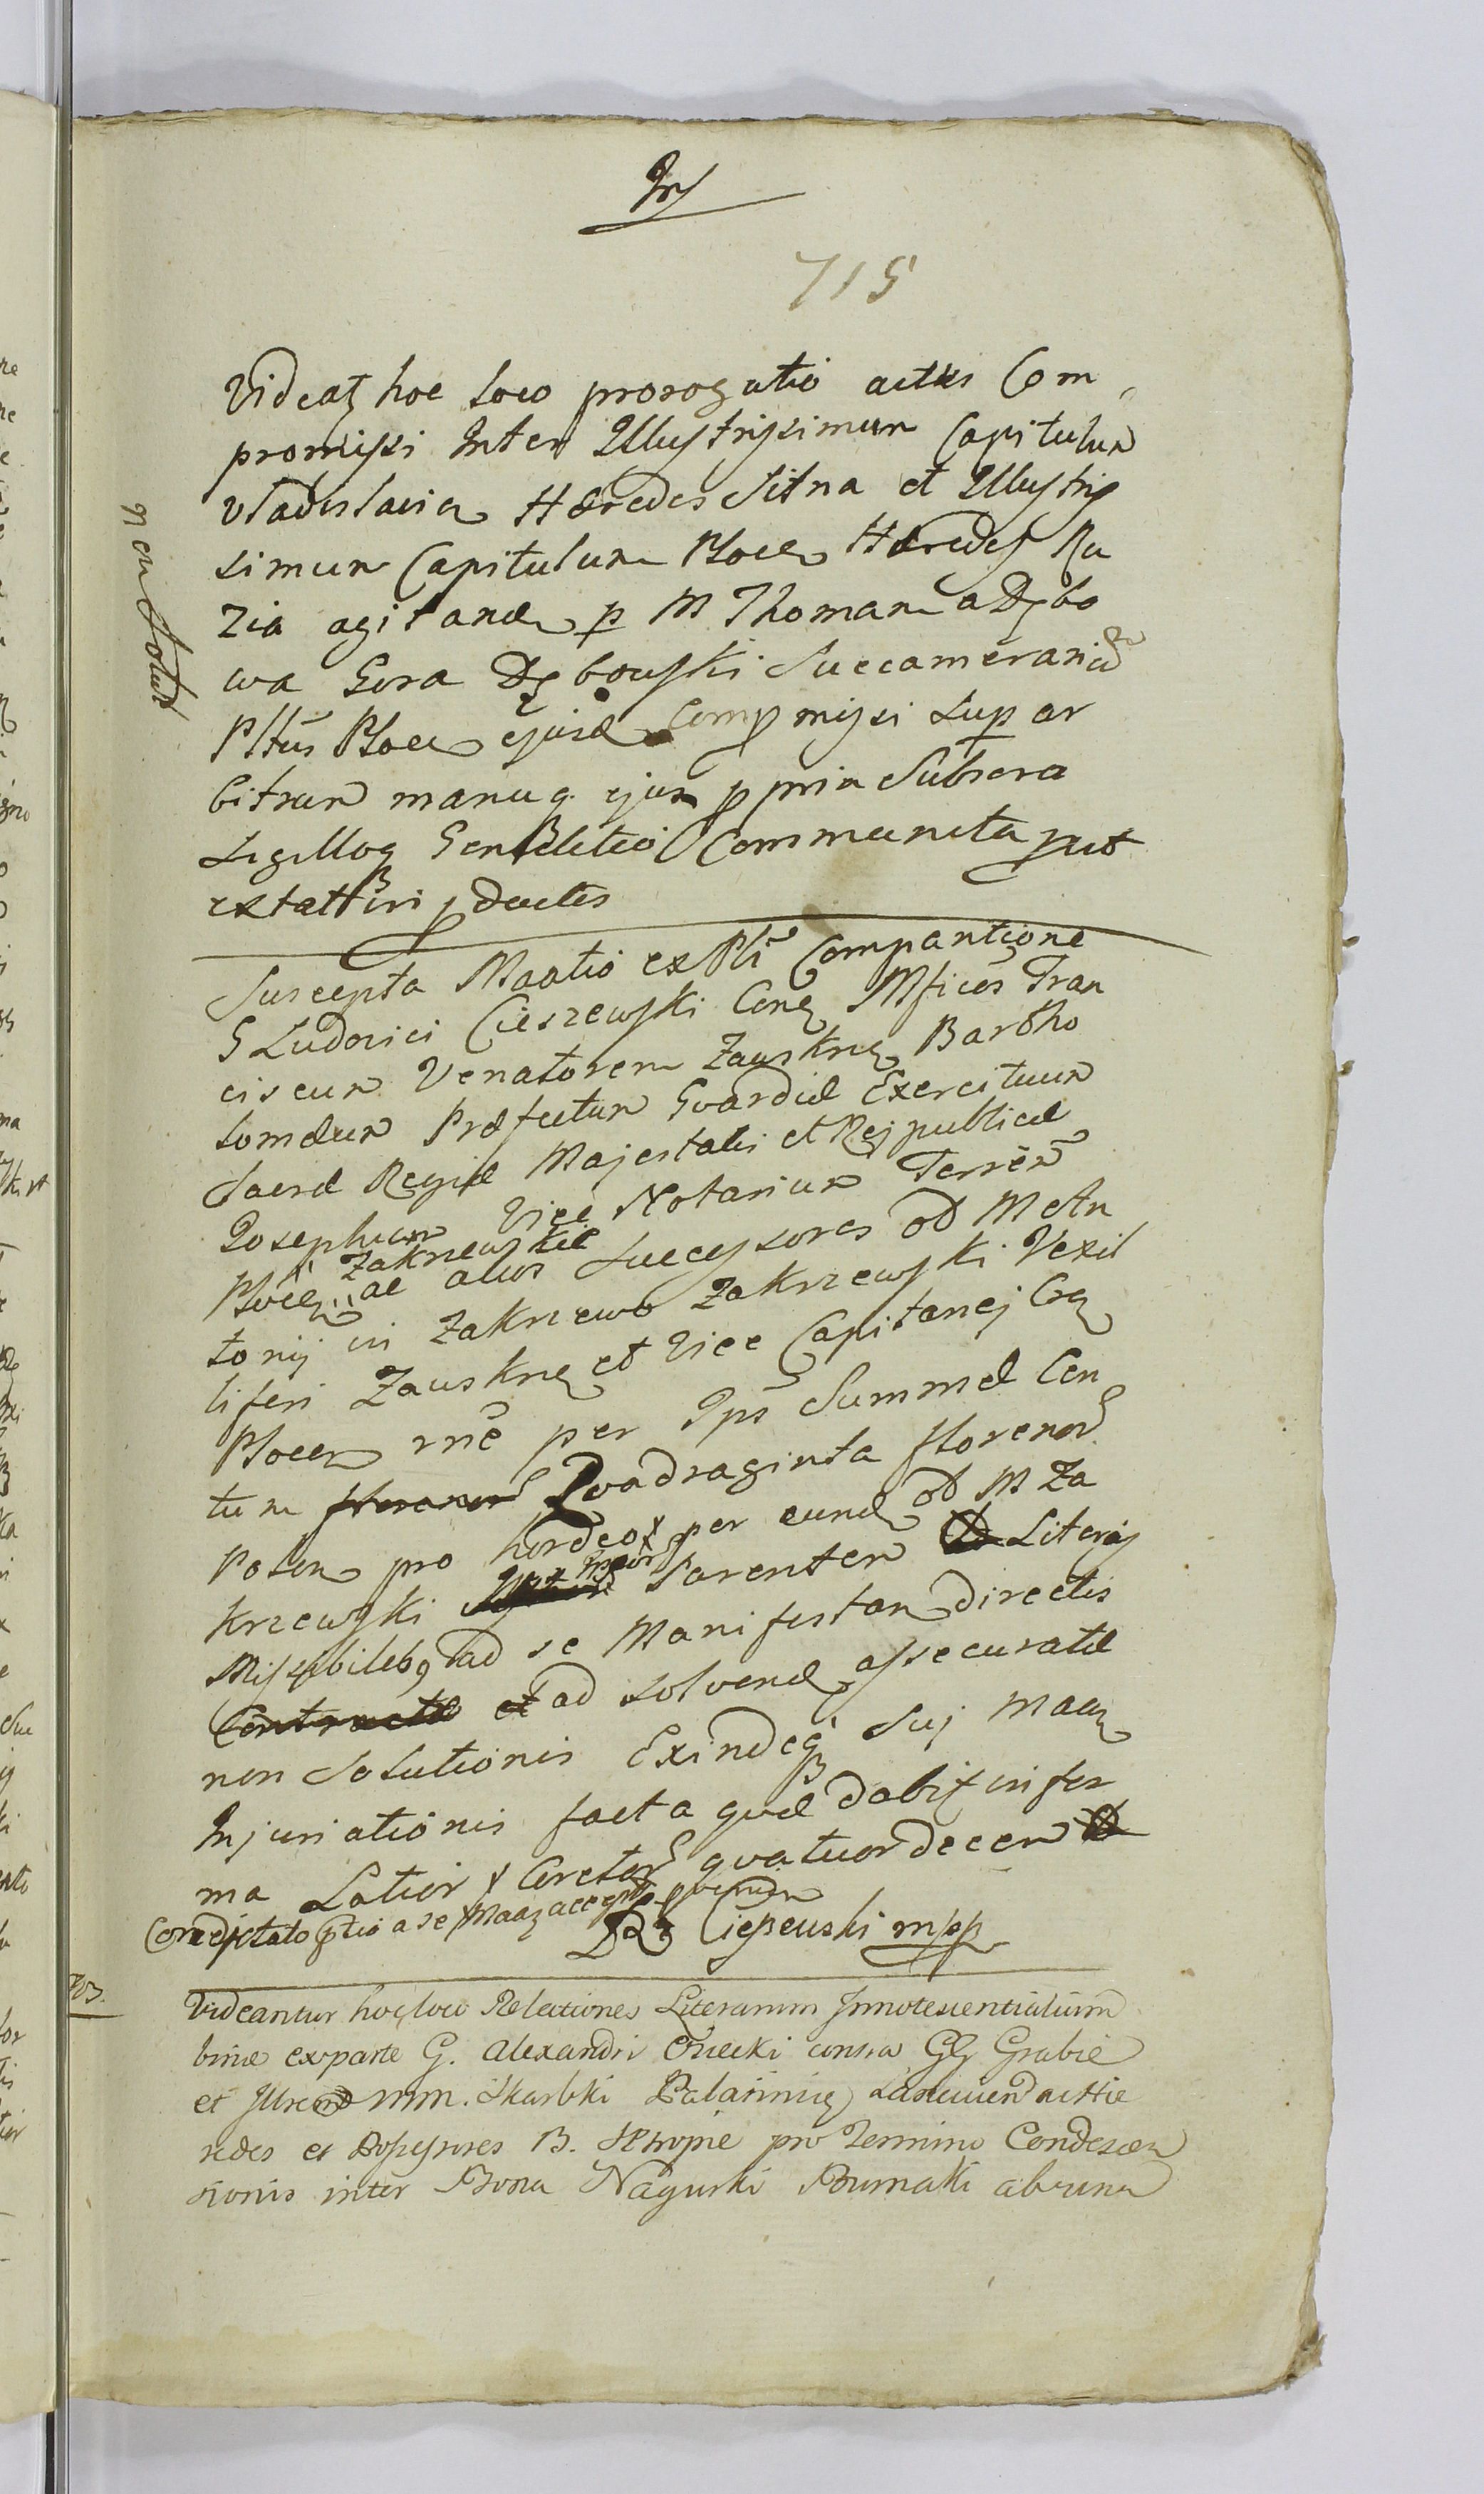 715
Videatz hoc loco prorogatio actus Com
promissi Inter Illustrissimum Capitulum
Vladislavien Hæredes Sitna et Illustris
simum Capitulum Plocen Hæredes Ru
zia agitand p M Thomam a Dębo
wa Gora Dębowski Succamerarid
Pltus Plocen ejusd Compmissi Sup ar
bitrum manuq ejus ppria Subscra
Sigilloq Gentilitio Communita put
extatt
non solut
Suscepta Maatio ex Pli Compantione
G Ludovici Cieszewski Conę Mficos Fran
ciscum Venatorem Zauskrnę Bartho
lomæum Præfectum Gvardiæ Exercituum
Sacræ Regiæ Majestatis et Reipublicæ
Josephum Vice Notarium Terren
Zakrzewskie
Plocen ac alios Successores od M An
tonij in Zakrzewo Zakrzewski Vexil
liferi Zauskrnę et Vice Capitanej Crę
Plocen rne per Ips Summæ Cen
tum Quadraginta florenor
Polon pro hordeo x per eund od M Za
krzewski Parentem Literis
Missilibq ad se Manifestan directis
Contractæ et ad solvend assecuratæ
non Solutionis Exindeq Suj Maan
Injuriationis facta quæ dabit infer
ma Latior x Coretor quatuordecem
Condictato ptio a se Maaz accept
Cieszewski mpp
Videantur hoc loco Relationes Literarum Innotescentialium
binæ ex parte G. Alexandri contra GG Grabie
et MM. Skarbki Palatinię
redes et Possessores B. pro Termino Condescen
sionis inter Bona Nagurki